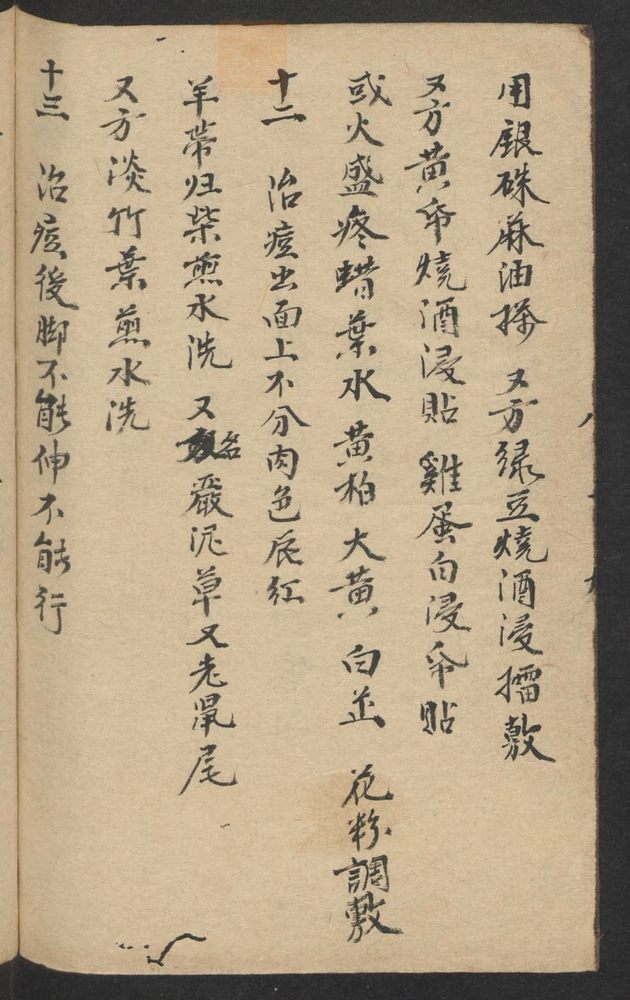 用銀硃麻油搽 又方綠豆燒酒浸擂敷
又方黄帋燒酒浸貼 雞蛋白浸帋貼
或火盛疼蜡葉水黄柏大黄白芷 花粉調敷
十二 治痘出面上不分肉色辰紅
羊蒂归柴煎水洗 又名嚴泥草又老鼠尾
又方淡竹葉煎水洗
十三 治痘後脚不能伸不能行